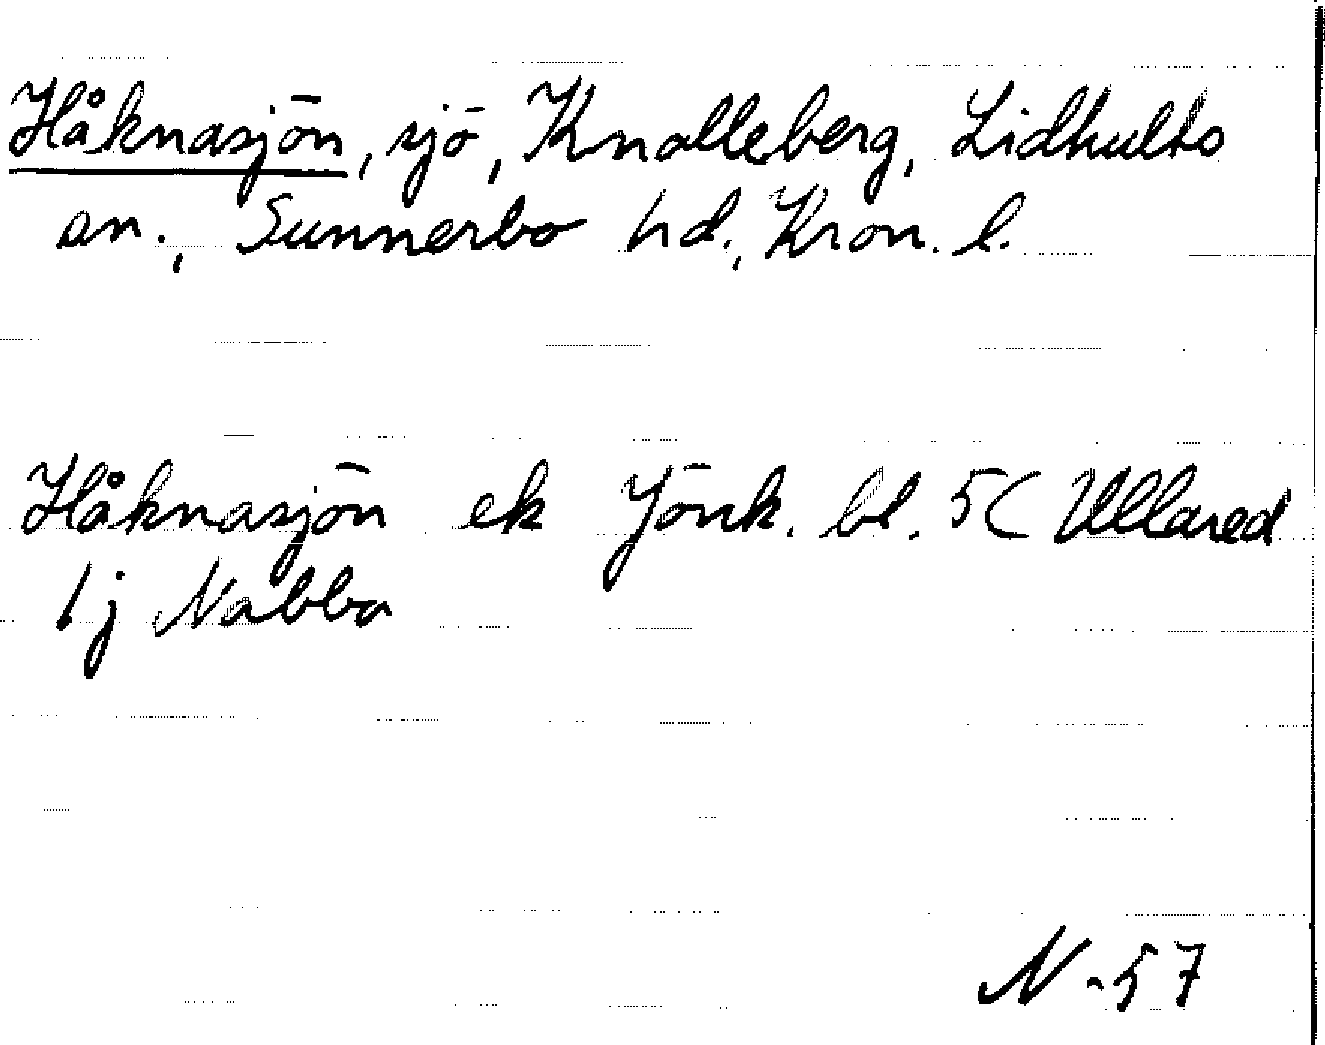 Håknasjön, sjö, Knalleberg, Lidhults
sn., Sunnerbo hd., Kron. l.
Håknasjön ek Jönk. bl. 5C Ullared
1j Nabba
N-57